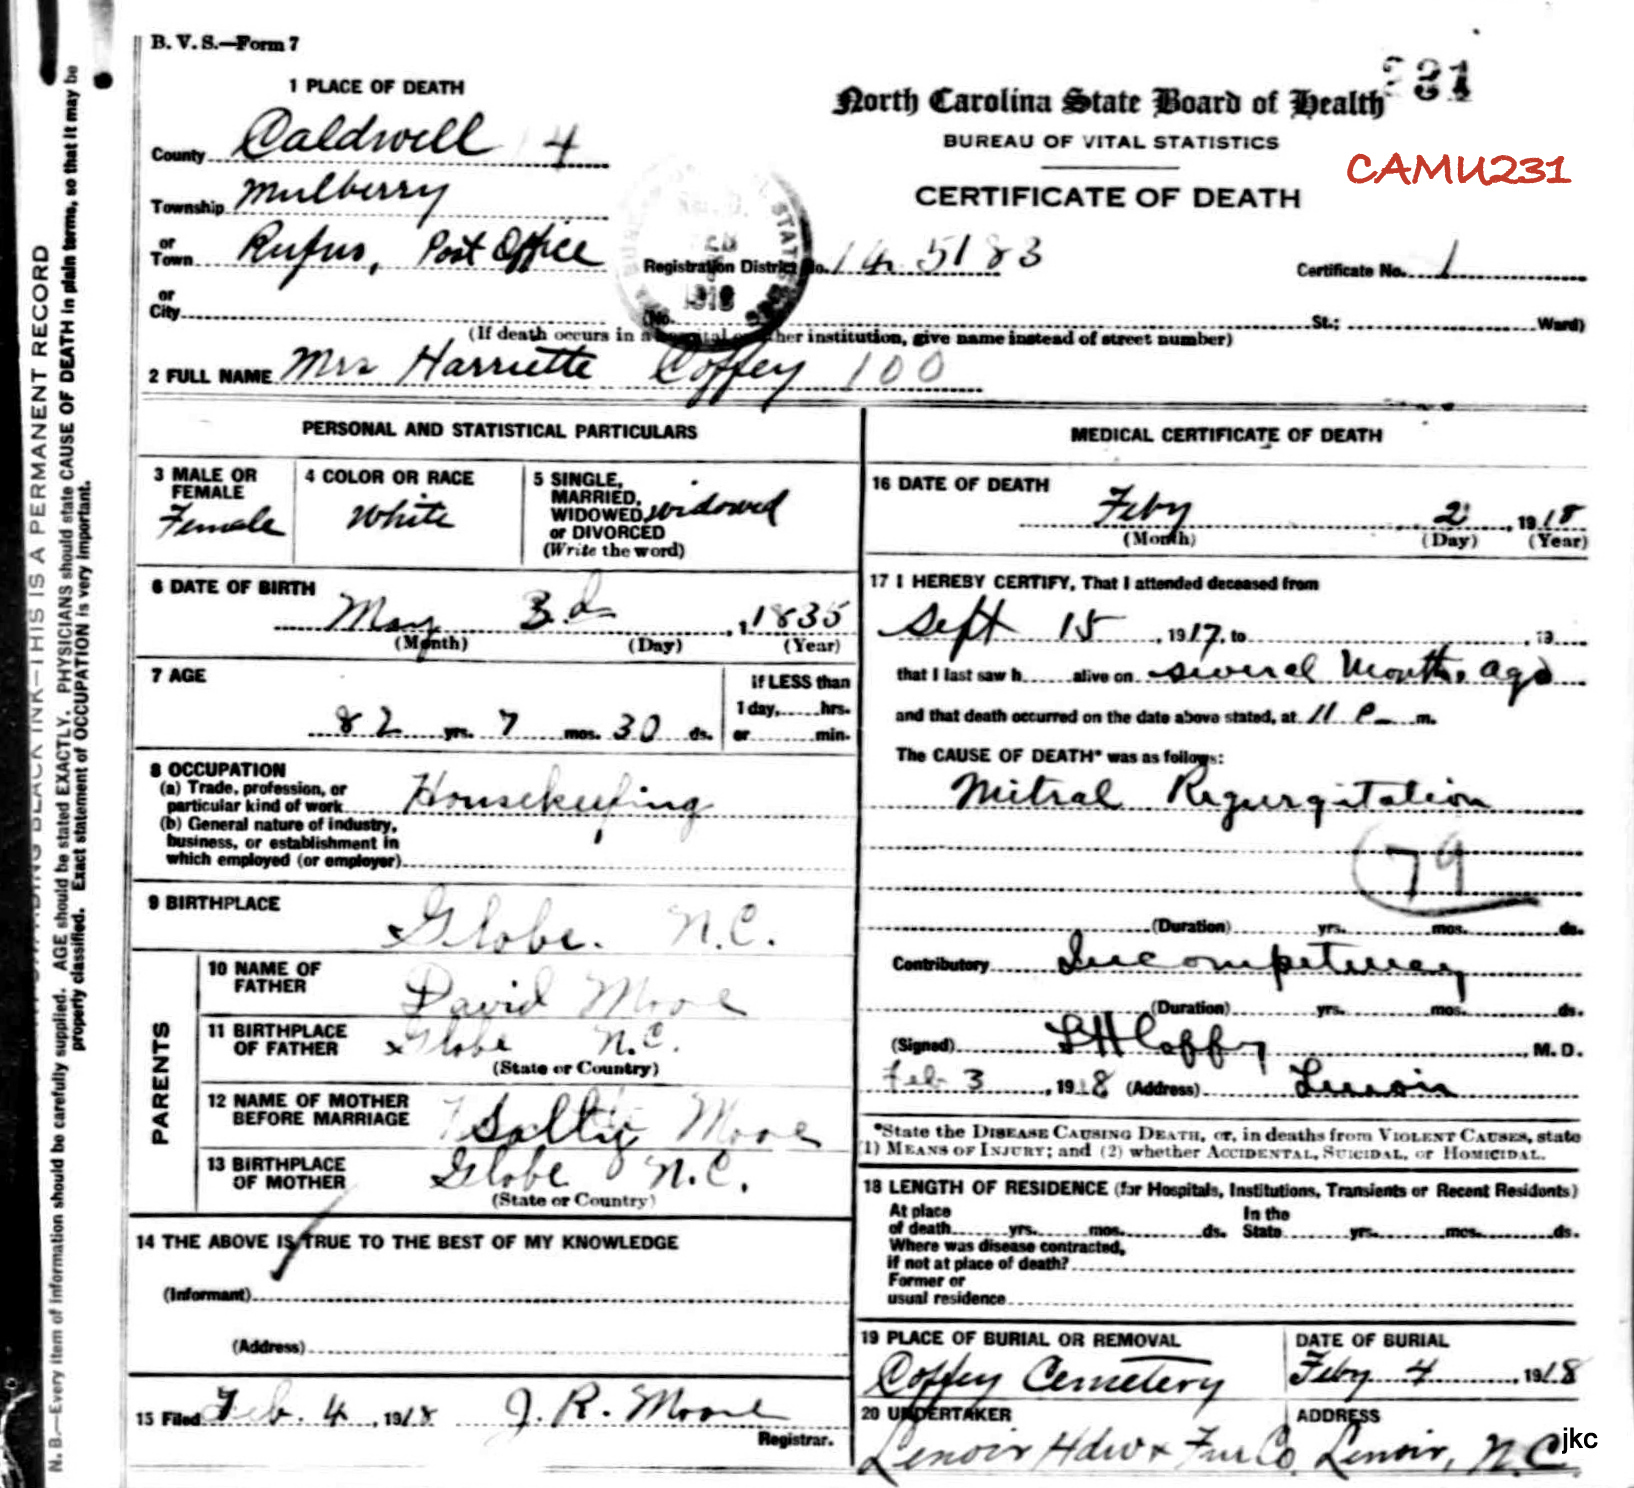 B. V. S.—Form 7
231
North Carolina State Board of Health
BUREAU OF VITAL STATISTICS
CAMU231
CERTIFICATE OF DEATH
1 PLACE OF DEATH
County Caldwell 14
Township Mulberry
or Town Rufus, Post Office
Registration District No. 14 5183
Certificate No. 1
or City
(No. St.; Ward)
1918
(If death occurs in a hospital or other institution, give name instead of street number)
2 FULL NAME Mrs Harriette Coffey 100
PERSONAL AND STATISTICAL PARTICULARS
3 MALE OR FEMALE
Female
4 COLOR OR RACE
White
5 SINGLE, MARRIED, WIDOWED, or DIVORCED (Write the word)
widowed
6 DATE OF BIRTH
May 3d, 1835
(Month) (Day) (Year)
7 AGE
82 yrs. 7 mos. 30 ds.
If LESS than
1 day, hrs.
or min.
8 OCCUPATION
(a) Trade, profession, or
particular kind of work Housekeeping
(b) General nature of industry,
business, or establishment in
which employed (or employer)
9 BIRTHPLACE
Globe. N.C.
PARENTS
10 NAME OF FATHER
David Moore
11 BIRTHPLACE OF FATHER
Globe N.C.
(State or Country)
12 NAME OF MOTHER BEFORE MARRIAGE
Sallie Moore
13 BIRTHPLACE OF MOTHER
Globe N.C.
(State or Country)
14 THE ABOVE IS TRUE TO THE BEST OF MY KNOWLEDGE
(Informant)
(Address)
15 Filed Feb. 4, 1918 J. R. Moore
Registrar.
MEDICAL CERTIFICATE OF DEATH
16 DATE OF DEATH
Feby 2, 1918
(Month) (Day) (Year)
17 I HEREBY CERTIFY, That I attended deceased from
Sept 15, 1917, to , 19
that I last saw h alive on several Months ago
and that death occurred on the date above stated, at 11 P m.
The CAUSE OF DEATH* was as follows:
Mitral Regurgitation
79
(Duration) yrs. mos. ds.
Contributory Incompetency
(Duration) yrs. mos. ds.
(Signed) Coffey, M. D.
Feb 3, 1918 (Address) Lenoir
*State the DISEASE CAUSING DEATH, or, in deaths from VIOLENT CAUSES, state
(1) MEANS OF INJURY; and (2) whether ACCIDENTAL, SUICIDAL, or HOMICIDAL.
18 LENGTH OF RESIDENCE (for Hospitals, Institutions, Transients or Recent Residents)
At place In the
of death yrs. mos. ds. State yrs. mos. ds.
Where was disease contracted,
if not at place of death?
Former or
usual residence
19 PLACE OF BURIAL OR REMOVAL
Coffey Cemetery
DATE OF BURIAL
Feby 4, 1918
20 UNDERTAKER
Lenoir Hdw & Fur Co.
ADDRESS
Lenoir, N.C.
jkc
THIS IS A PERMANENT RECORD
N. B.—Every item of information should be carefully supplied. AGE should be stated EXACTLY. PHYSICIANS should state CAUSE OF DEATH in plain terms, so that it may be
properly classified. Exact statement of OCCUPATION is very important.